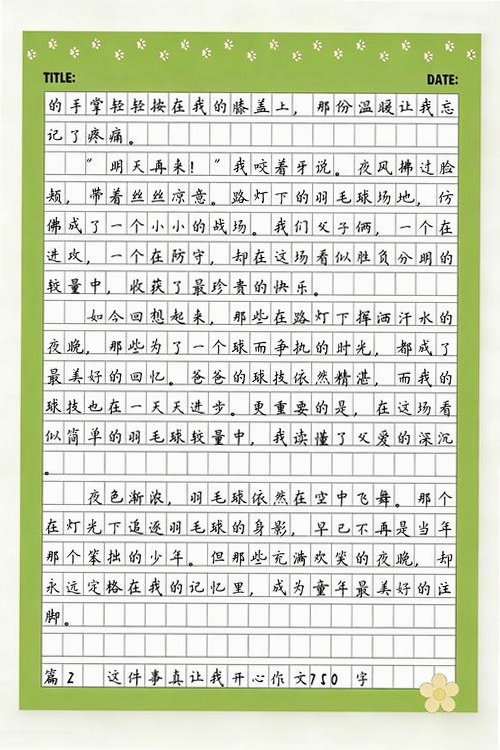 TITLE:
DATE:
的手掌轻轻按在我的膝盖上，那份温暖让我忘
记了疼痛。
“明天再来！”我咬着牙说。夜风拂过脸
颊，带着丝丝凉意。路灯下的羽毛球场地，仿
佛成了一个小小的战场。我们父子俩，一个在
进攻，一个在防守，却在这场看似胜负分明的
较量中，收获了最珍贵的快乐。
如今回想起来，那些在路灯下挥洒汗水的
夜晚，那些为了一个球而争执的时光，都成了
最美好的回忆。爸爸的球技依然精湛，而我的
球技也在一天天进步。更重要的是，在这场看
似简单的羽毛球较量中，我读懂了父爱的深沉
。
夜色渐浓，羽毛球依然在空中飞舞。那个
在灯光下追逐羽毛球的身影，早已不再是当年
那个笨拙的少年。但那些充满欢笑的夜晚，却
永远定格在我的记忆里，成为童年最美好的注
脚。
篇2 这件事真让我开心作文750字